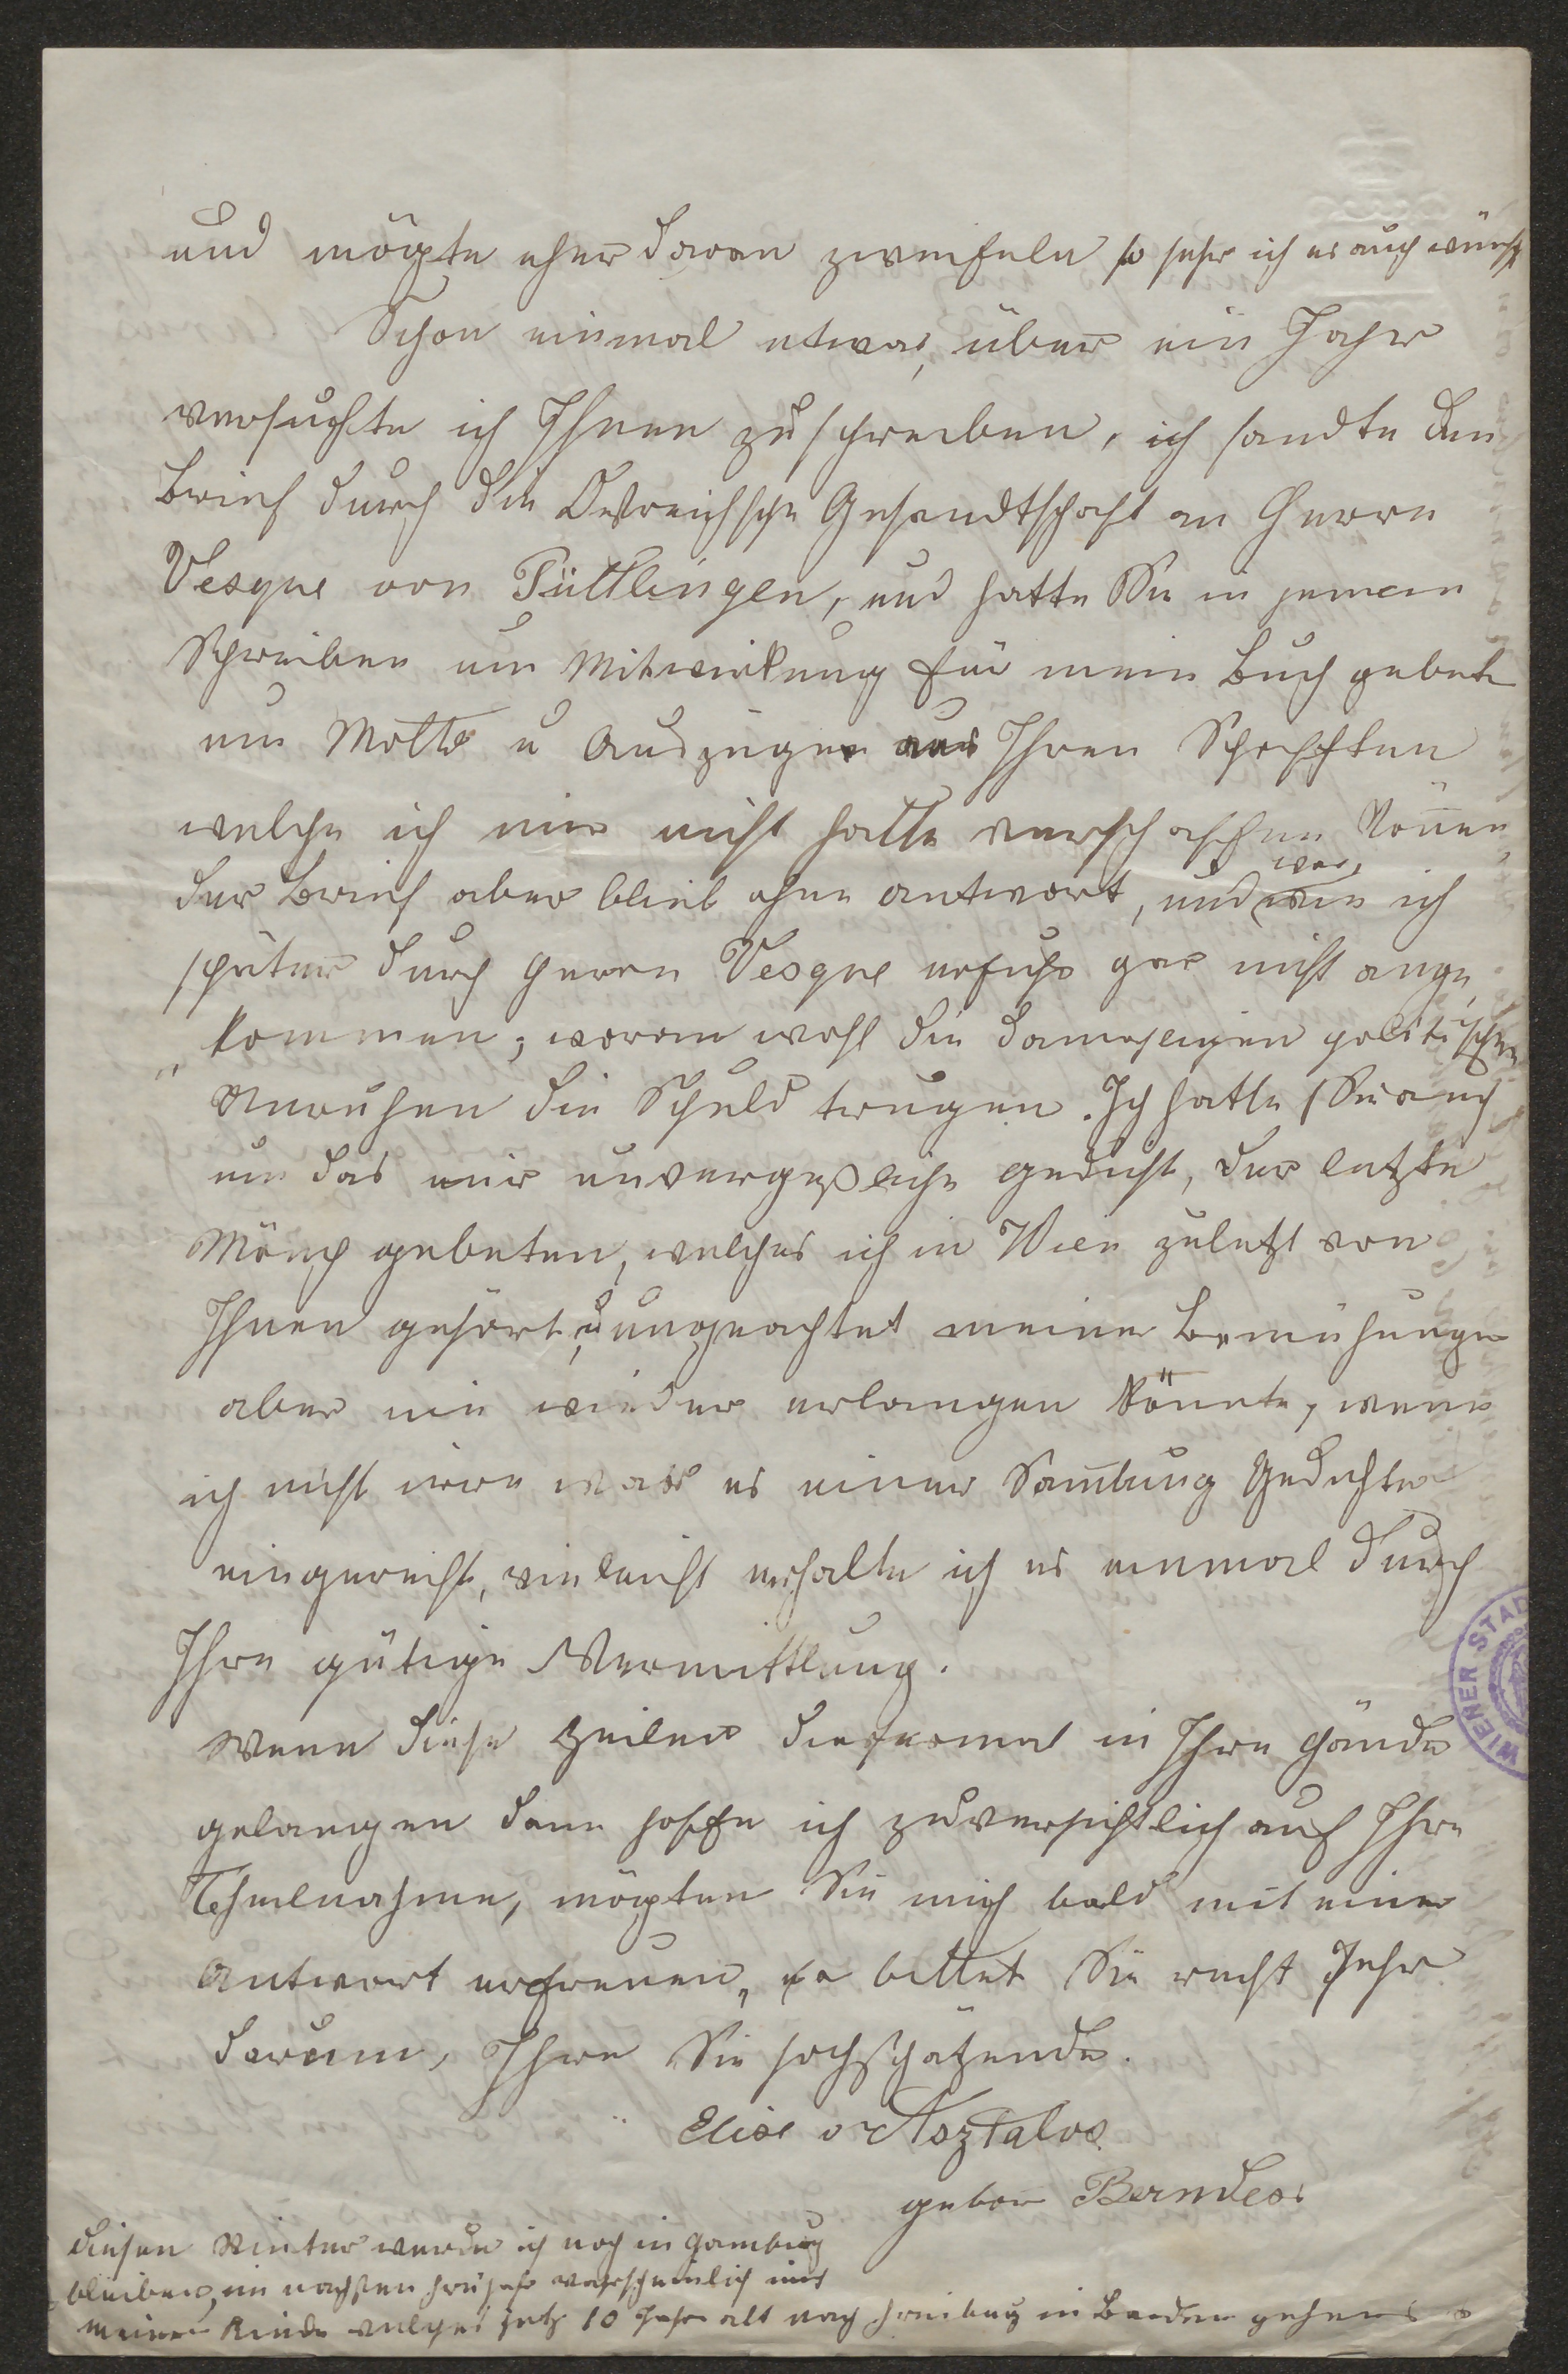 und mögte eher daran zweifeln so sehr ich es auch wünsch
Schon einmal etwas über ein Jahr
versuchte ich Ihnen zu schreiben, ich sandte den
Brief durch die Östreichsche Gesandtschaft an Herrn
Vesque von Püttlingen, und hatte Sie in jenem
Schreiben um Mitwirkung für mein Buch gebet
um Motto u Auszüge aus Ihren Schriften
welche ich mir nicht hatte verschaffen können
war,
der Brief aber blieb ohne Antwort, und wie ich
später durch Herrn Vesque erfuhr gar nicht ange
" kommen; woran wohl die damahligen politischen
Unruhen die Schuld trugen. Ich hatte Sie auch
um das mir unvergeßliche Gedicht, der letzte
Mönch gebeten, welches ich in Wien zuletzt von
Ihnen gehört, u ungeachtet meiner Bemühungen
aber nie wieder erlangen könnte, wenn
ich nicht irre war es einer Samlung Gedichte
eingereiht, vieleicht erhalte ich es einmal durch
Ihre gütige Vermittlung.
Wenn diese Zeilen diesesmal in Ihre Hände
gelangen dann hoffe ich zuversichtlich auf Ihre
Theilnahme, mögten Sie mich bald mit einer
Antwort erfreuen, es bittet Sie recht sehr
darum, Ihre Sie hochschätzende.
Elise v Asztalos
geborn Berndes
Diesen Winter werde ich noch in Hamburg
bleiben, im nachsten Frühjahr warscheinlich mit
meinem Kinde welches jetz 10 Jahr alt nach Freiburg in Baaden gehen
WIENER STAD